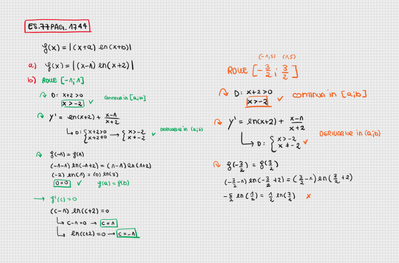 ES.77 PAG. 1744
f(x) = |(x+a) ln(x+b)|
a) f(x) = |(x-1) ln(x+2)|
b) ROLLE [-1;1]
D: x+2>0
x>-2 ✓ continua in [a;b]
y' = ln(x+2) + x-1/x+2
D: {x+2>0 x+2≠0 → {x>-2 x≠-2 ✓ DERIVABILE in (a;b)
f(-1) = f(1)
(-1-1) ln(-1+2) = (1-1) ln(1+2)
(-2) ln(1) = (0) ln(3)
0=0 ✓ f(a) = f(b)
→ f'(c) = 0
(c-1) ln(c+2) = 0
c-1=0 → c=1
ln(c+2)=0 → c=-1
(-1,5) (1,5)
ROLLE [-3/2; 3/2]
D: x+2>0
x>-2 ✓ CONTINUA in [a;b]
y' = ln(x+2) + x-1/x+2
D: {x>-2 x≠-2 ✓ DERIVABILE in (a;b)
f(-3/2) = f(3/2)
(-3/2-1) ln(-3/2+2) = (3/2-1) ln(3/2+2)